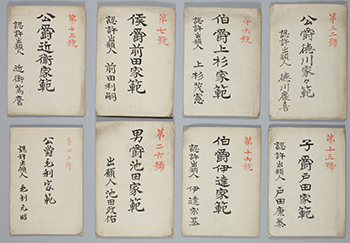 第十三號
公爵近衛家範
認許出願人 近衛篤麿
第七號
侯爵前田家範
認許出願人 前田利嗣
第六號
伯爵上杉家範
認許出願人 上杉茂憲
公爵德川家々範
認許出願人 德川慶喜
公爵毛利家範
認許出願人 毛利元昭
第二六號
男爵池田家範
出願人 池田政佑
第十六號
伯爵伊達家範
認許出願人 伊達宗基
第十五號
子爵戸田家範
認許出願人 戸田康泰